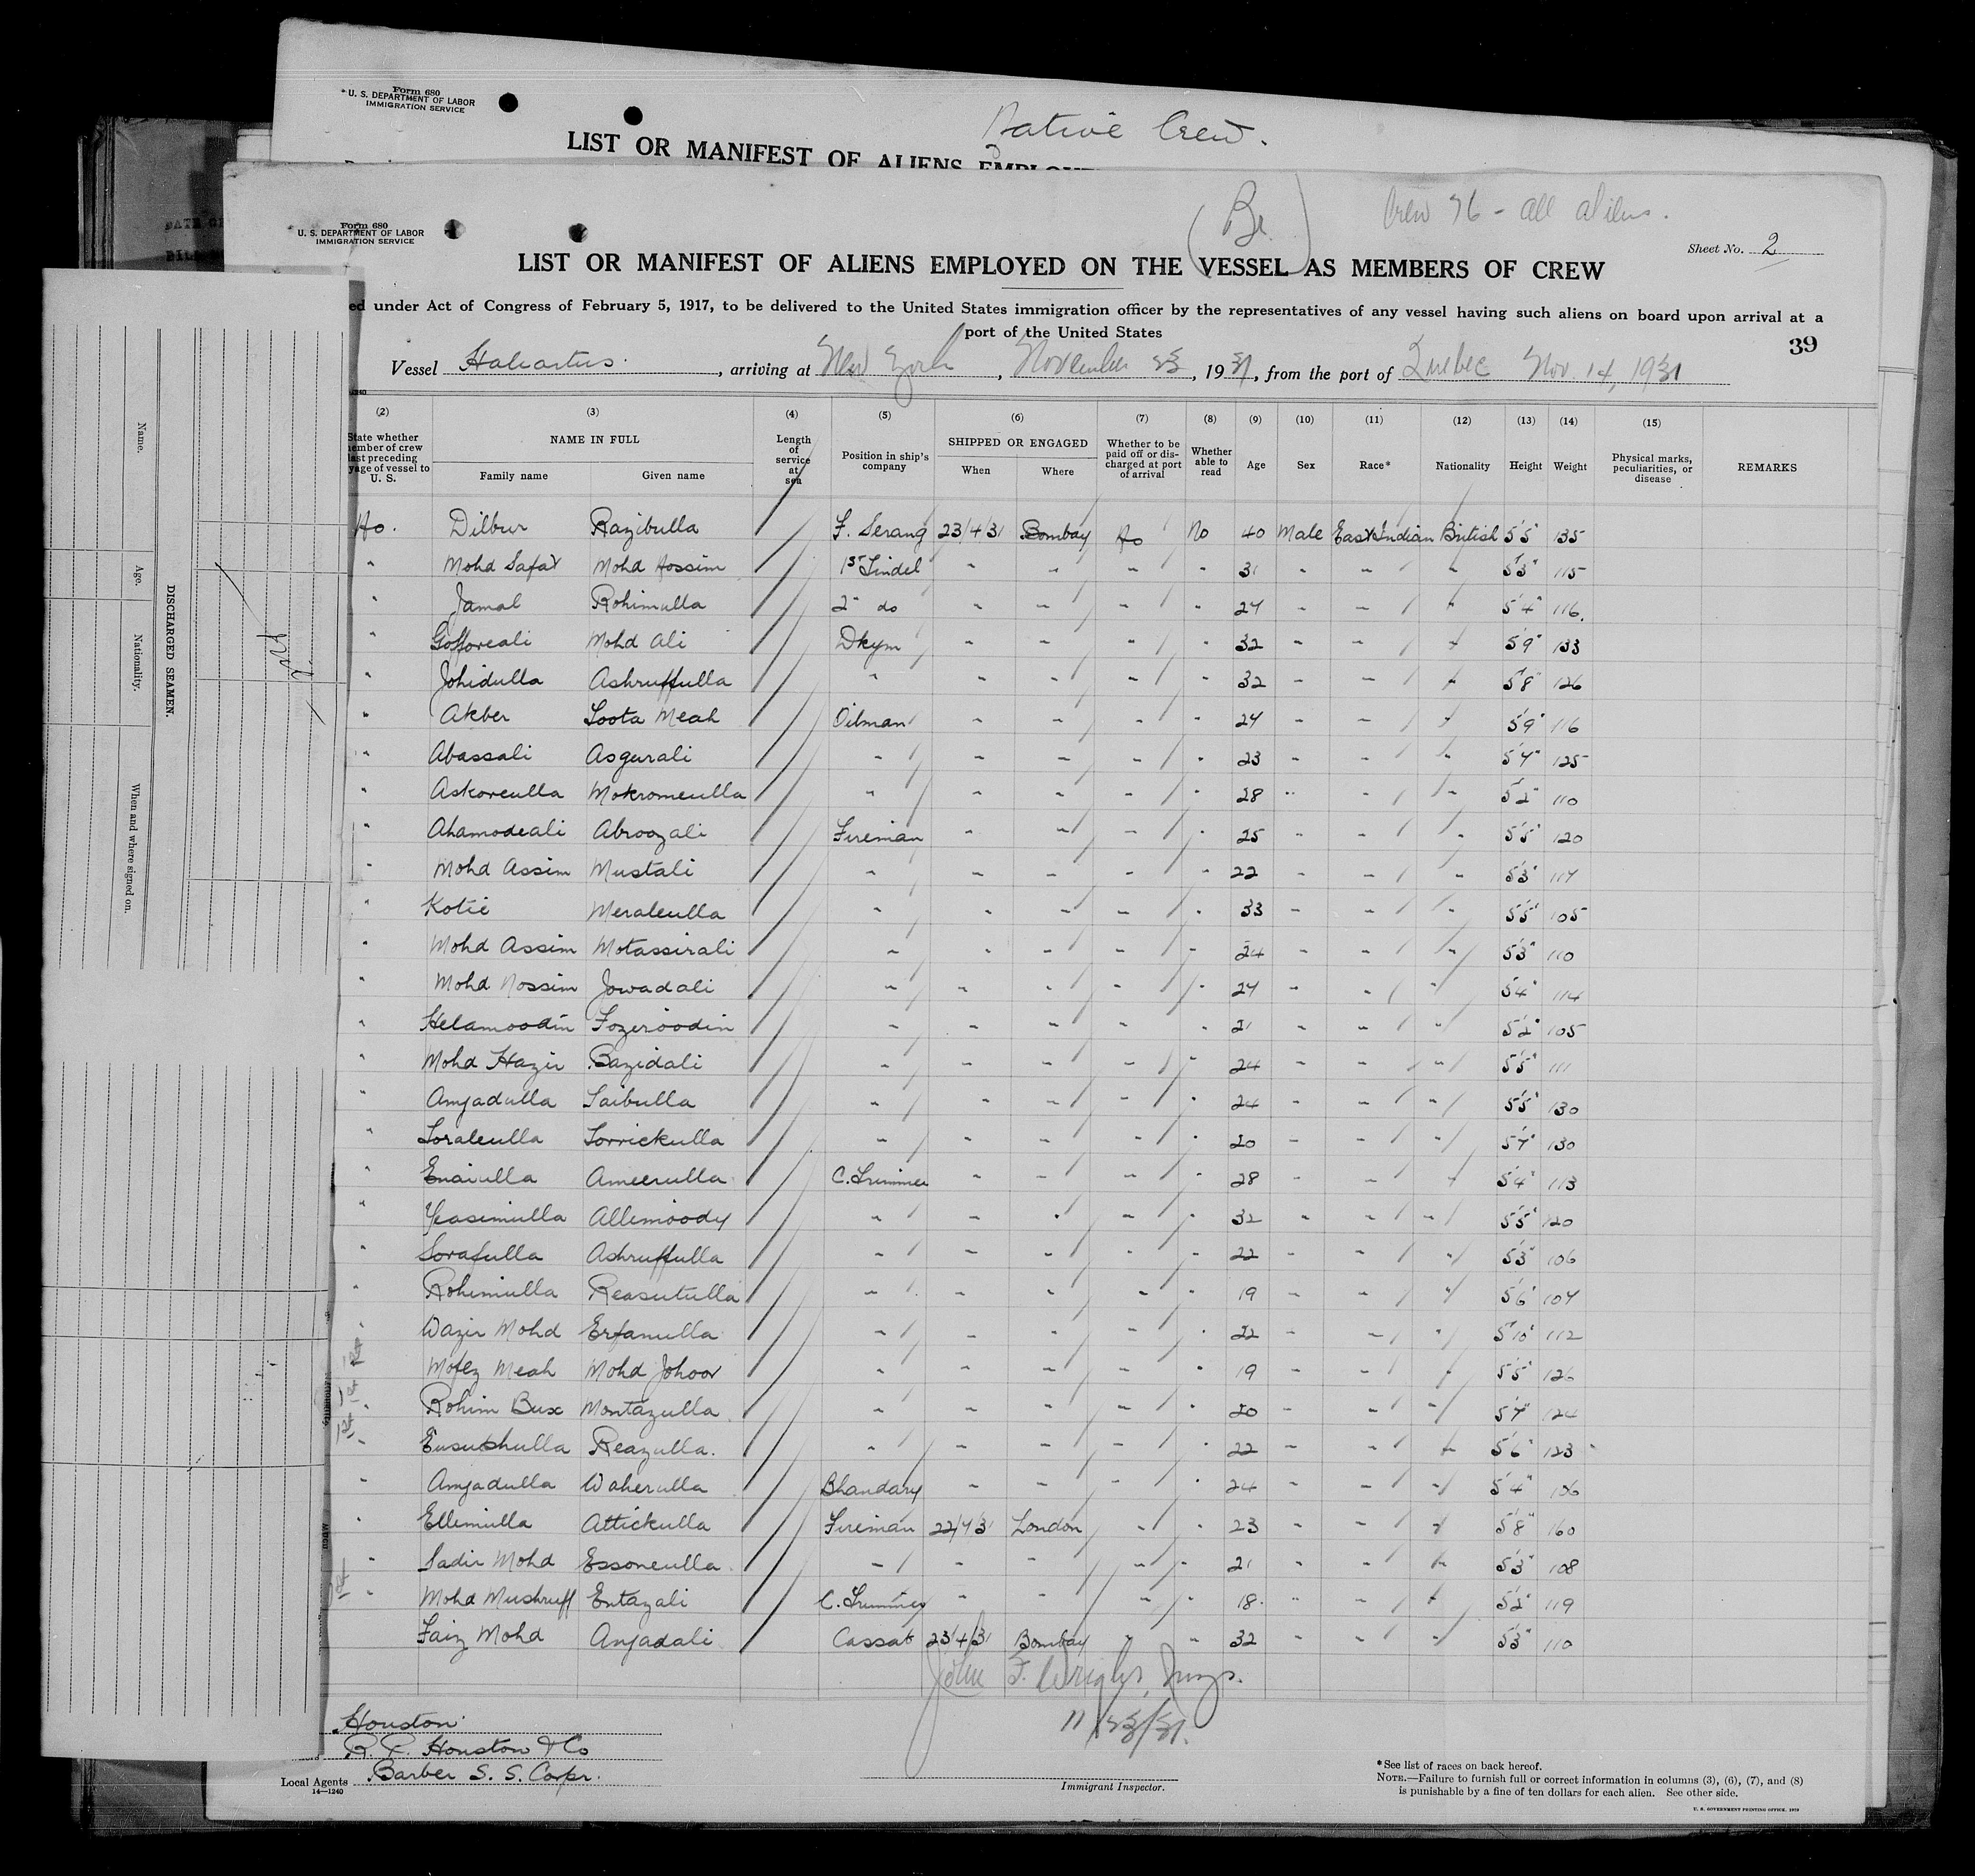 Form 680
U. S. DEPARTMENT OF LABOR
IMMIGRATION SERVICE
Native Crew.
LIST OR MANIFEST OF ALIENS
(Br.)
Crew 76 - all aliens.
Form 680
U. S. DEPARTMENT OF LABOR
IMMIGRATION SERVICE
Sheet No. 2
LIST OR MANIFEST OF ALIENS EMPLOYED ON THE VESSEL AS MEMBERS OF CREW
ed under Act of Congress of February 5, 1917, to be delivered to the United States immigration officer by the representatives of any vessel having such aliens on board upon arrival at a
port of the United States
39
Vessel Haliartus, arriving at New York, November 23, 1931, from the port of Quebec Nov. 14, 1931
(2) (3) (4) (5) (6) (7) (8) (9) (10) (11) (12) (13) (14) (15)
State whether
ember of crew
ast preceding
yage of vessel to
U. S.
NAME IN FULL
Family name Given name
Length of service at sea
Position in ship's company
SHIPPED OR ENGAGED
When Where
Whether to be paid off or discharged at port of arrival
Whether able to read
Age Sex Race* Nationality Height Weight
Physical marks, peculiarities, or disease
REMARKS
No. Dilbur Razibulla F. Serang 23/4/31 Bombay No No 40 Male East Indian British 5'5" 135
" Mohd Safat Mohd Hossim 1st Tindel - - - - 31 - - - 5'3" 115
" Jamal Rohimulla 2" do - - - - 24 - - - 5'4" 116
" Gofforeali Mohd Ali Dkym - - - - 32 - - - 5'9" 133
" Johidulla Ashruffulla " - - - - 32 - - - 5'8" 126
" Akber Toota Meah Oilman - - - - 24 - - - 5'9" 116
" Abassali Asgurali - - - - - 23 - - - 5'4" 125
" Askoreulla Mokromeulla " - - - - 28 - - - 5'2" 110
" Ahamodeali Abroozali Fireman - - - - 25 - - - 5'5" 120
" Mohd Assim Mustali - - - - - 22 - - - 5'3" 117
" Kotie Meraleulla - - - - - 33 - - - 5'5" 105
" Mohd Assim Motassirali - - - - - 24 - - - 5'3" 110
" Mohd Nossim Jowadali - - - - - 24 - - - 5'4" 114
" Helamoodin Fozeroodin - - - - - 21 - - - 5'2" 105
" Mohd Hazir Bazidali - - - - - 24 - - - 5'5" 111
" Amjadulla Saibulla - - - - - 24 - - - 5'5" 130
" Soraleulla Sorrickulla - - - - - 20 - - - 5'7" 130
" Enaiulla Ameerulla C. Trimmer - - - - 28 - - - 5'4" 113
" Yeasimulla Allimoody - - - - - 32 - - - 5'5" 120
" Sorafulla Ashruffulla - - - - - 22 - - - 5'3" 106
" Rohimulla Reasutulla - - - - - 19 - - - 5'6" 107
" Wazir Mohd Erfanulla - - - - - 22 - - - 5'10" 112
1st " Mofez Meah Mohd Johoor - - - - - 19 - - - 5'5" 126
1st " Rohim Bux Montazulla - - - - - 20 - - - 5'7" 124
1st " Eusubhulla Reazulla. - - - - - 22 - - - 5'6" 123
" Amjadulla Waherulla Bhandary - - - - 24 - - - 5'4" 106
" Ellimulla Attickulla Fireman 22/7/31 London - - 23 - - - 5'8" 160
" Sadir Mohd Essoneulla - - - - - 21 - - - 5'3" 108
1st " Mohd Mushruff Entazali C. Trimmer - - - - 18 - - - 5'2" 119
Faiz Mohd Anjadali Cassab 23/4/31 Bombay - - 32 - - - 5'3" 110
John F. Wright, Insp.
11/23/31.
Houston
R. P. Houston & Co
Local Agents Barber S. S. Corpr.
14—1240
Immigrant Inspector.
*See list of races on back hereof.
NOTE.—Failure to furnish full or correct information in columns (3), (6), (7), and (8)
is punishable by a fine of ten dollars for each alien. See other side.
U. S. GOVERNMENT PRINTING OFFICE
Name.
Age.
Nationality.
When and where signed on.
DISCHARGED SEAMEN.
nil